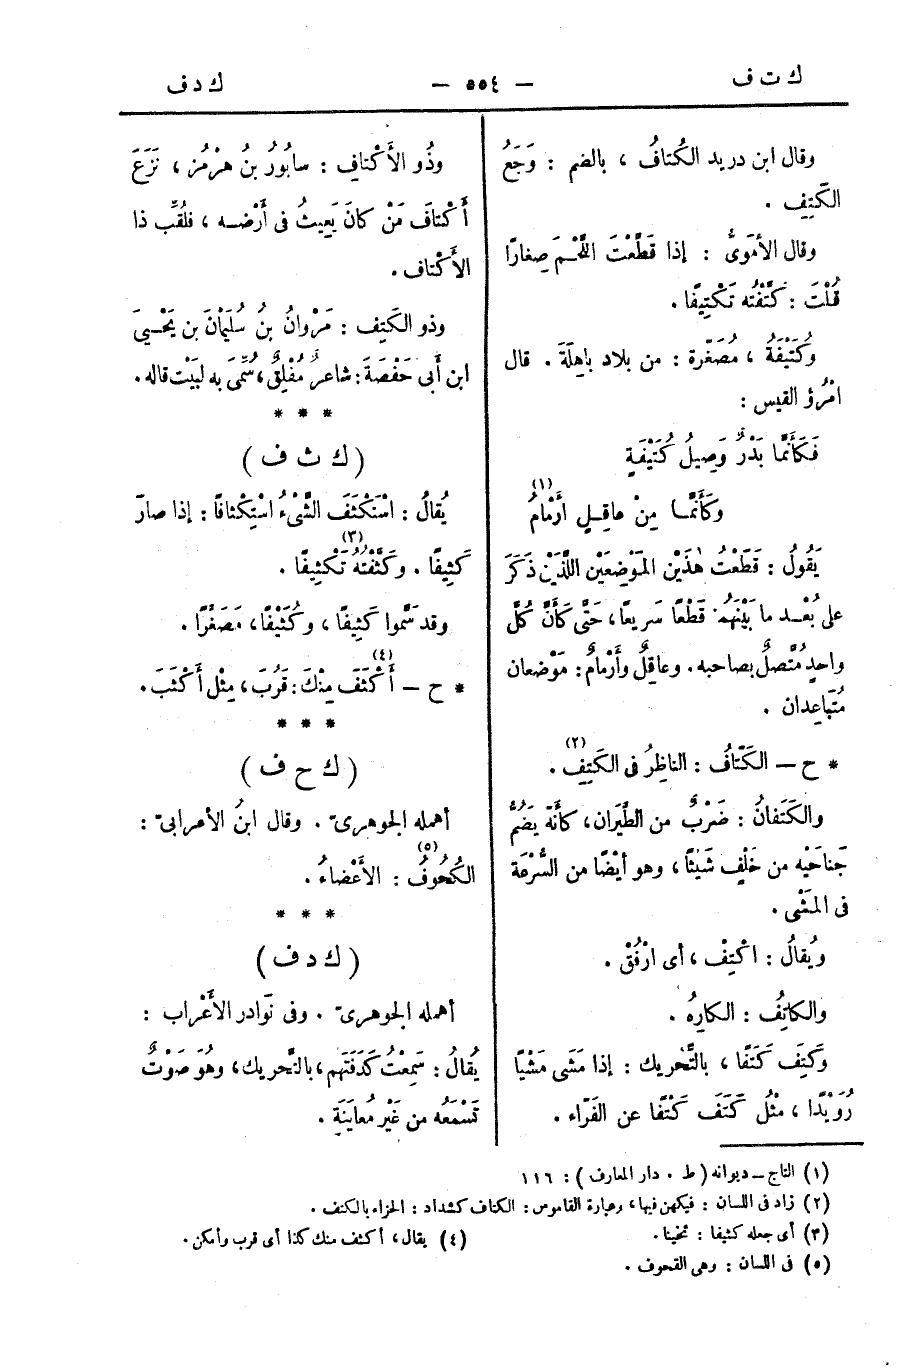 ك ت ف
— ٥٥٤ —
ك د ف
وقال ابن دريد الكُتافُ ، بالضم : وَجَعُ
الكَتِفِ .
وقال الأمَوىُّ : إذا قَطَّعْتَ اللَّحْمَ صِغارًا
قُلْتَ : كَتَّفْتُه تَكْتِيفًا .
وكُتَيْفَةُ ، مُصَغَّرة : من بلاد باهِلَةَ . قال
امْرُؤ القيس :
فَكَأَنَّمَا بَدْرٌ وَصِيلُ كُتَيْفَةٍ
وَكَأَنَّمَا مِنْ عاقِلٍ أَرْمامُ (١)
يَقُولُ : قَطَعْتُ هٰذَيْنِ المَوْضِعَيْنِ اللَّذَيْنِ ذَكَرَ
على بُعْدِ ما بَيْنَهُمَا قَطْعًا سَرِيعًا، حَتَّى كَأَنَّ كُلَّ
واحدٍ مُتَّصِلٌ بصاحبه . وعاقِلٌ وأَرْمامٌ : مَوْضعان
مُتَباعِدان .
* ح — الكَتّافُ : الناظِرُ فى الكَتِفِ (٢) .
والكَتَفانُ : ضَرْبٌ من الطَّيَران، كأنّه يَضُمّ
جَناحَيْه من خَلْفٍ شَيئًا، وهو أيْضًا من السُّرْعَة
فى المَشْى .
ويُقالُ : اكْتِفْ ، أى ارْفُقْ .
والكاتِفُ : الكارِهُ .
وكَتِفَ كَتَفًا ، بالتَّحْرِيك : إذا مَشَى مَشْيًا
رُوَيْدًا ، مثْلُ كَتَفَ كَتْفًا عن الفَرّاء .
وذُو الأَكْتافِ : سابُورُ بنُ هرْمُز ، نَزَعَ
أَكْتافَ مَنْ كانَ يَعِيثُ فى أَرْضه ، فلُقِّب ذا
الأَكْتاف .
وذو الكَتِف : مَرْوانُ بنُ سُلَيْمانَ بن يَحْيَى
ابن أبى حَفْصَةَ : شاعرٌ مُفْلِقٌ، سُمِّىَ به لبَيْت قاله .
* * *
( ك ث ف )
يُقالُ : اسْتَكْثَفَ الشَّىْءُ اسْتِكْثافًا : إذا صارَ
كَثِيفًا . وكَثَّفْتُهُ (٣) تَكْثِيفًا .
وقد سَمَّوا كَثِيفًا ، وكُثَيْفًا، مُصَغَّرًا .
* ح — أَكْثَفَ (٤) مِنْكَ : قَرُبَ، مِثْل أَكْثَبَ .
* * *
( ك ح ف )
أهمله الجوهرىّ . وقال ابنُ الأعرابىّ :
الكُحُوفُ (٥) : الأَعْضاءُ .
* * *
( ك د ف )
أهمله الجوهرىّ . وفى نَوادر الأَعْراب :
يُقالُ : سَمِعْتُ كَدَفَتَهم ، بالتَّحْرِيك، وهُوَ صَوْتٌ
تَسْمَعُه من غَيْر مُعايَنَةٍ .
(١) التاج — ديوانه ( ط . دار المعارف ) : ١١٦
(٢) زاد فى اللسان : فيكهن فيها، وعبارة القاموس : الكتاف كشداد : الحزاء بالكتف .
(٣) أى جعله كثيفا : ثخينا .
(٤) يقال، أكثف منك كذا أى قرب وأمكن .
(٥) فى اللسان : وهى القحوف .